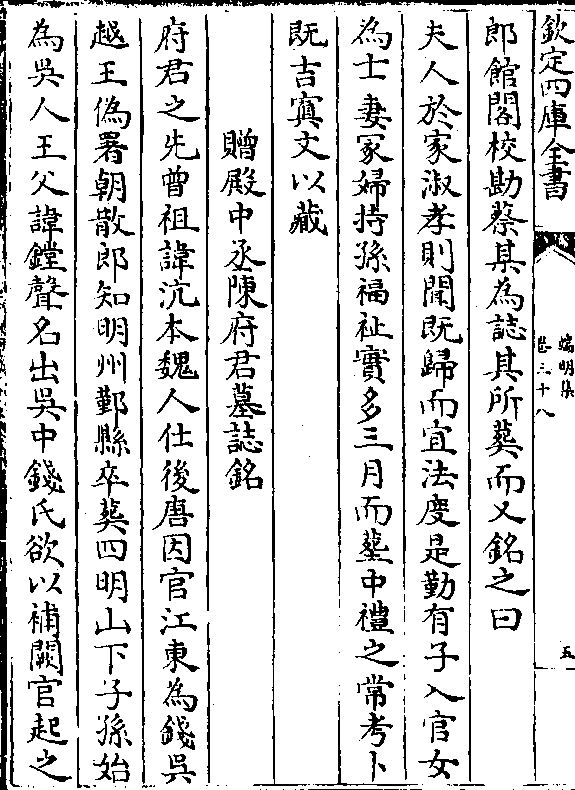 欽定四庫全書
端明集
卷三十八
五
郎館閣校勘蔡某為誌其所葬而又銘之曰
夫人於家淑孝則聞既歸而宜法度是勤有子入官女
為士妻冢婦持孫福祉實多三月而塟中禮之常考卜
既吉寘文以藏
贈殿中丞陳府君墓誌銘
府君之先曾祖諱沆本魏人仕後唐因官江東為錢吳
越王偽署朝散郎知明州鄞縣卒葬四明山下子孫始
為吳人王父諱鏜聲名出吳中錢氏欲以補闕官起之